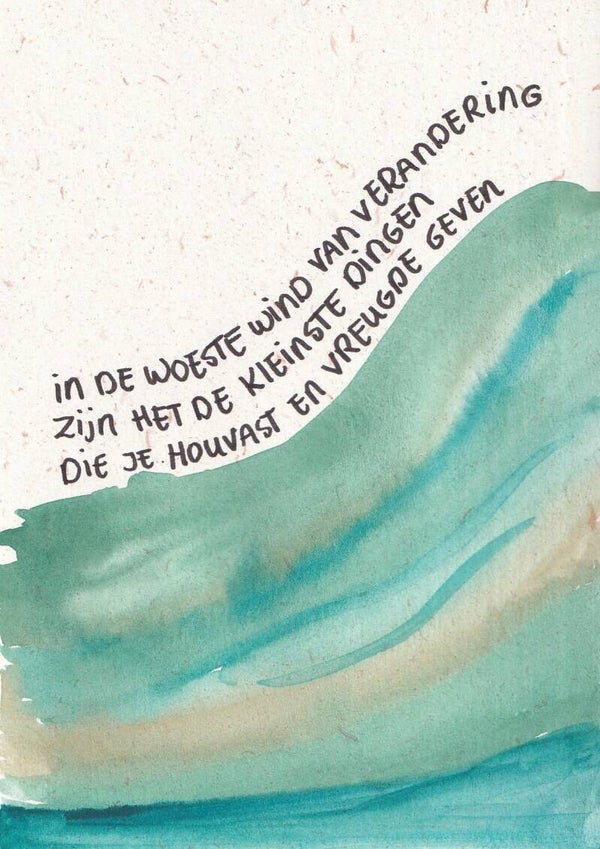 in DE WOESTE WIND VAN VERANDERING
Zijn HET DE KLEINSTE DINGEN
DIE JE HOUVAST EN VREUGDE GEVEN